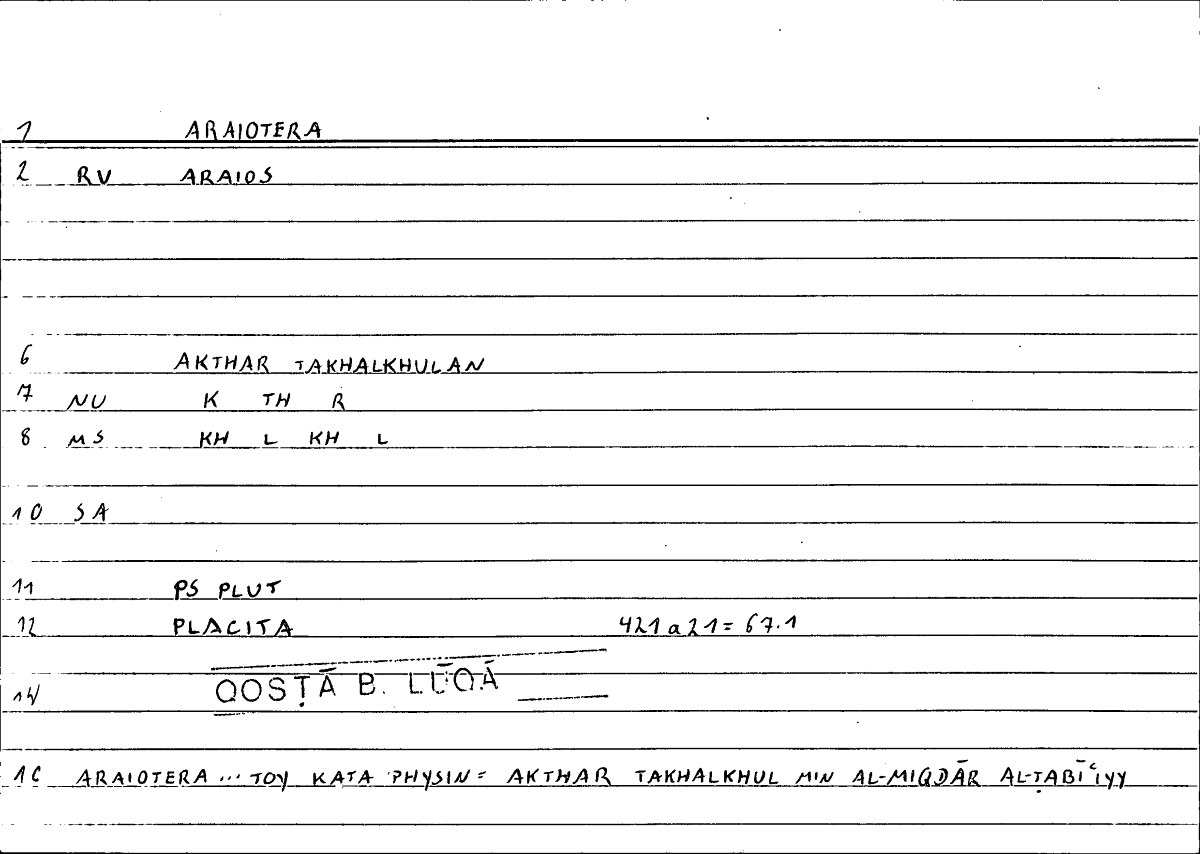 1 ARAIOTERA
2 RV ARAIOS
6 AKTHAR TAKHALKHULAN
7 NU K TH R
8 MS KH L KH L
10 SA
11 PS PLUT
12 PLACITA 421a21 = 67.1
14 QOSṬĀ B. LŪQĀ
16 ARAIOTERA ... TOY KATA PHYSIN = AKTHAR TAKHALKHUL MIN AL-MIQDĀR AL-ṬABĪʿIYY